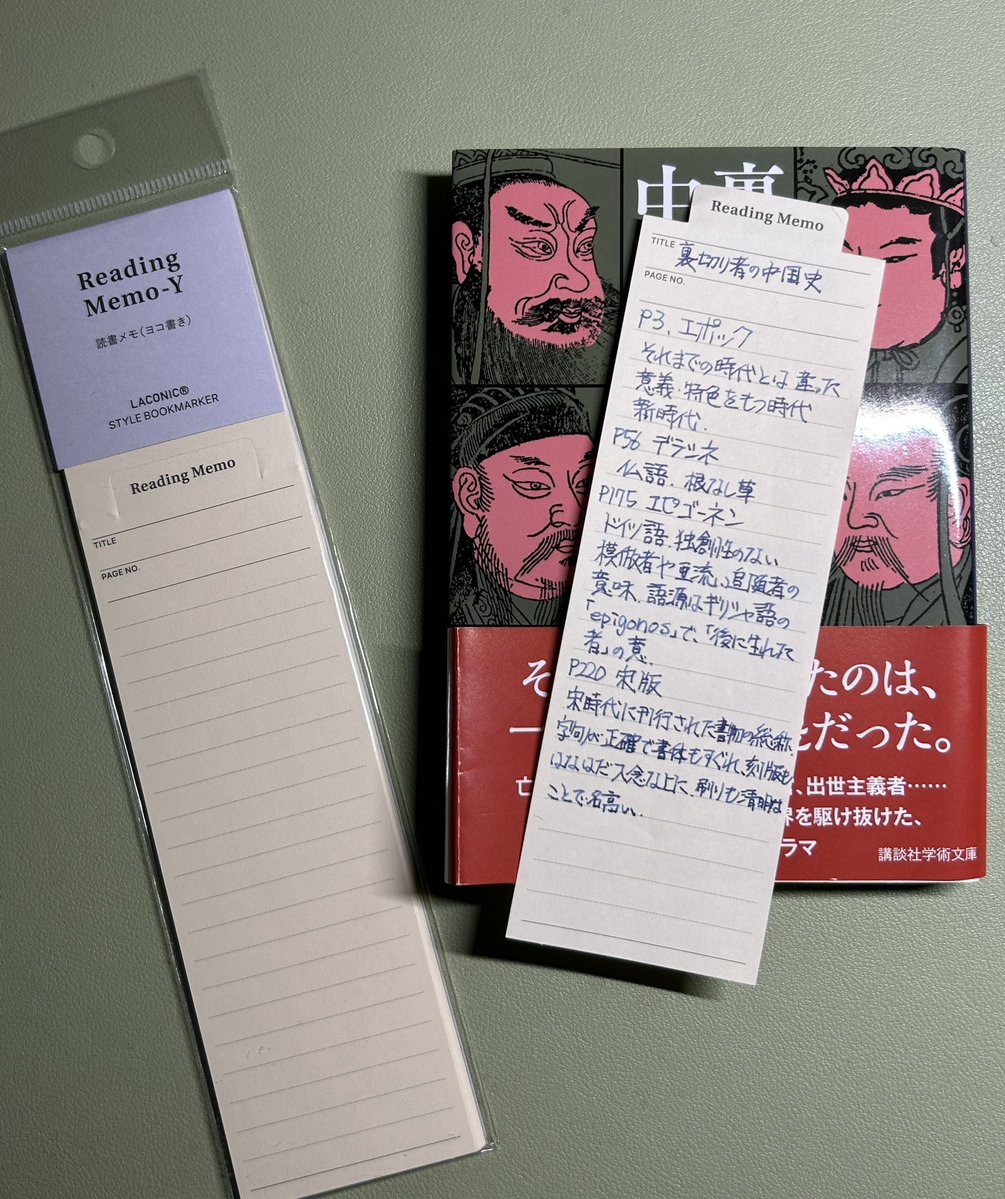 Reading
Memo-Y
読書メモ(ヨコ書き)
LACONIC®
STYLE BOOKMARKER
Reading Memo
TITLE
PAGE NO.
Reading Memo
TITLE 裏切り者の中国史
PAGE NO.
P3. エポック
それまでの時代とは違った
意義・特色をもつ時代
新時代.
P56 デラシネ
仏語. 根なし草
P175 エピゴーネン
ドイツ語. 独創性のない
模倣者や亜流、追随者の
意味. 語源はギリシャ語の
「epigonos」で、「後に生れた
者」の意.
P220 宋版
宋時代に刊行された書物の総称.
字句が正確で書体もすぐれ、刻版も
はなはだ入念な上に、刷りも清明な
ことで名高い.
中裏
そ たのは、
一 だった。
亡 、出世主義者……
界を駆け抜けた、
ラマ
講談社学術文庫